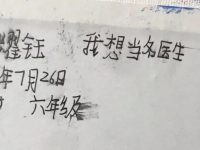 耀钰 我想当名医生
年7月26日
六年级